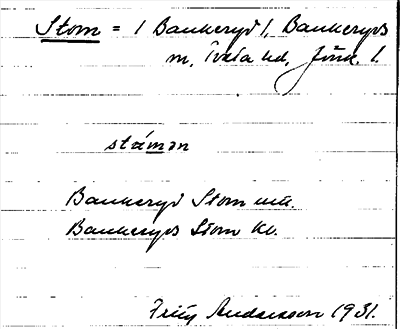 Stom = 1 Bankeryd 1, Bankeryds
m, Tveta hd, Jönk. l.
stáman
Bankeryd Stom utt.
Bankeryds Stom kv.
Fritz Andersson 1931.